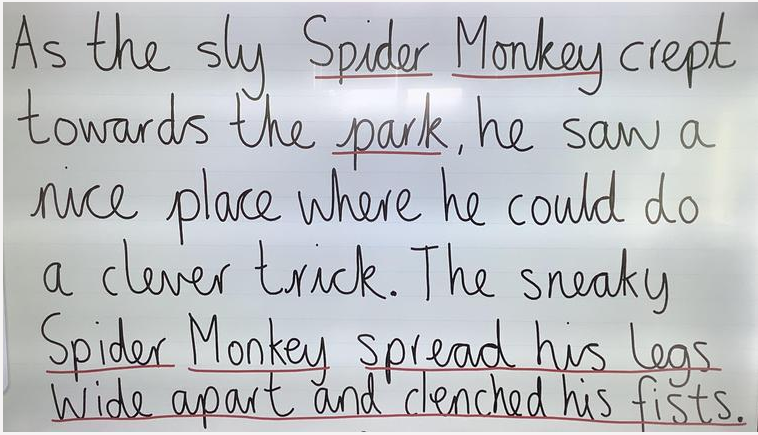 As the sly Spider Monkey crept
towards the park, he saw a
nice place where he could do
a clever trick. The sneaky
Spider Monkey spread his legs
wide apart and clenched his fists.